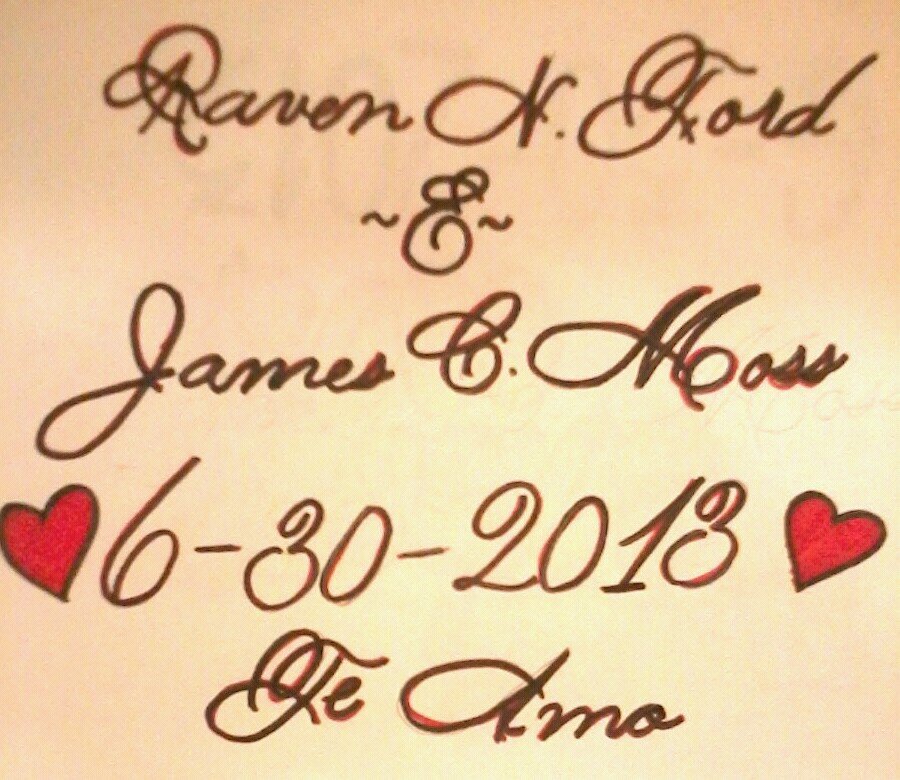 Raven N. Ford
~&~
James C. Moss
6-30-2013
Te Amo